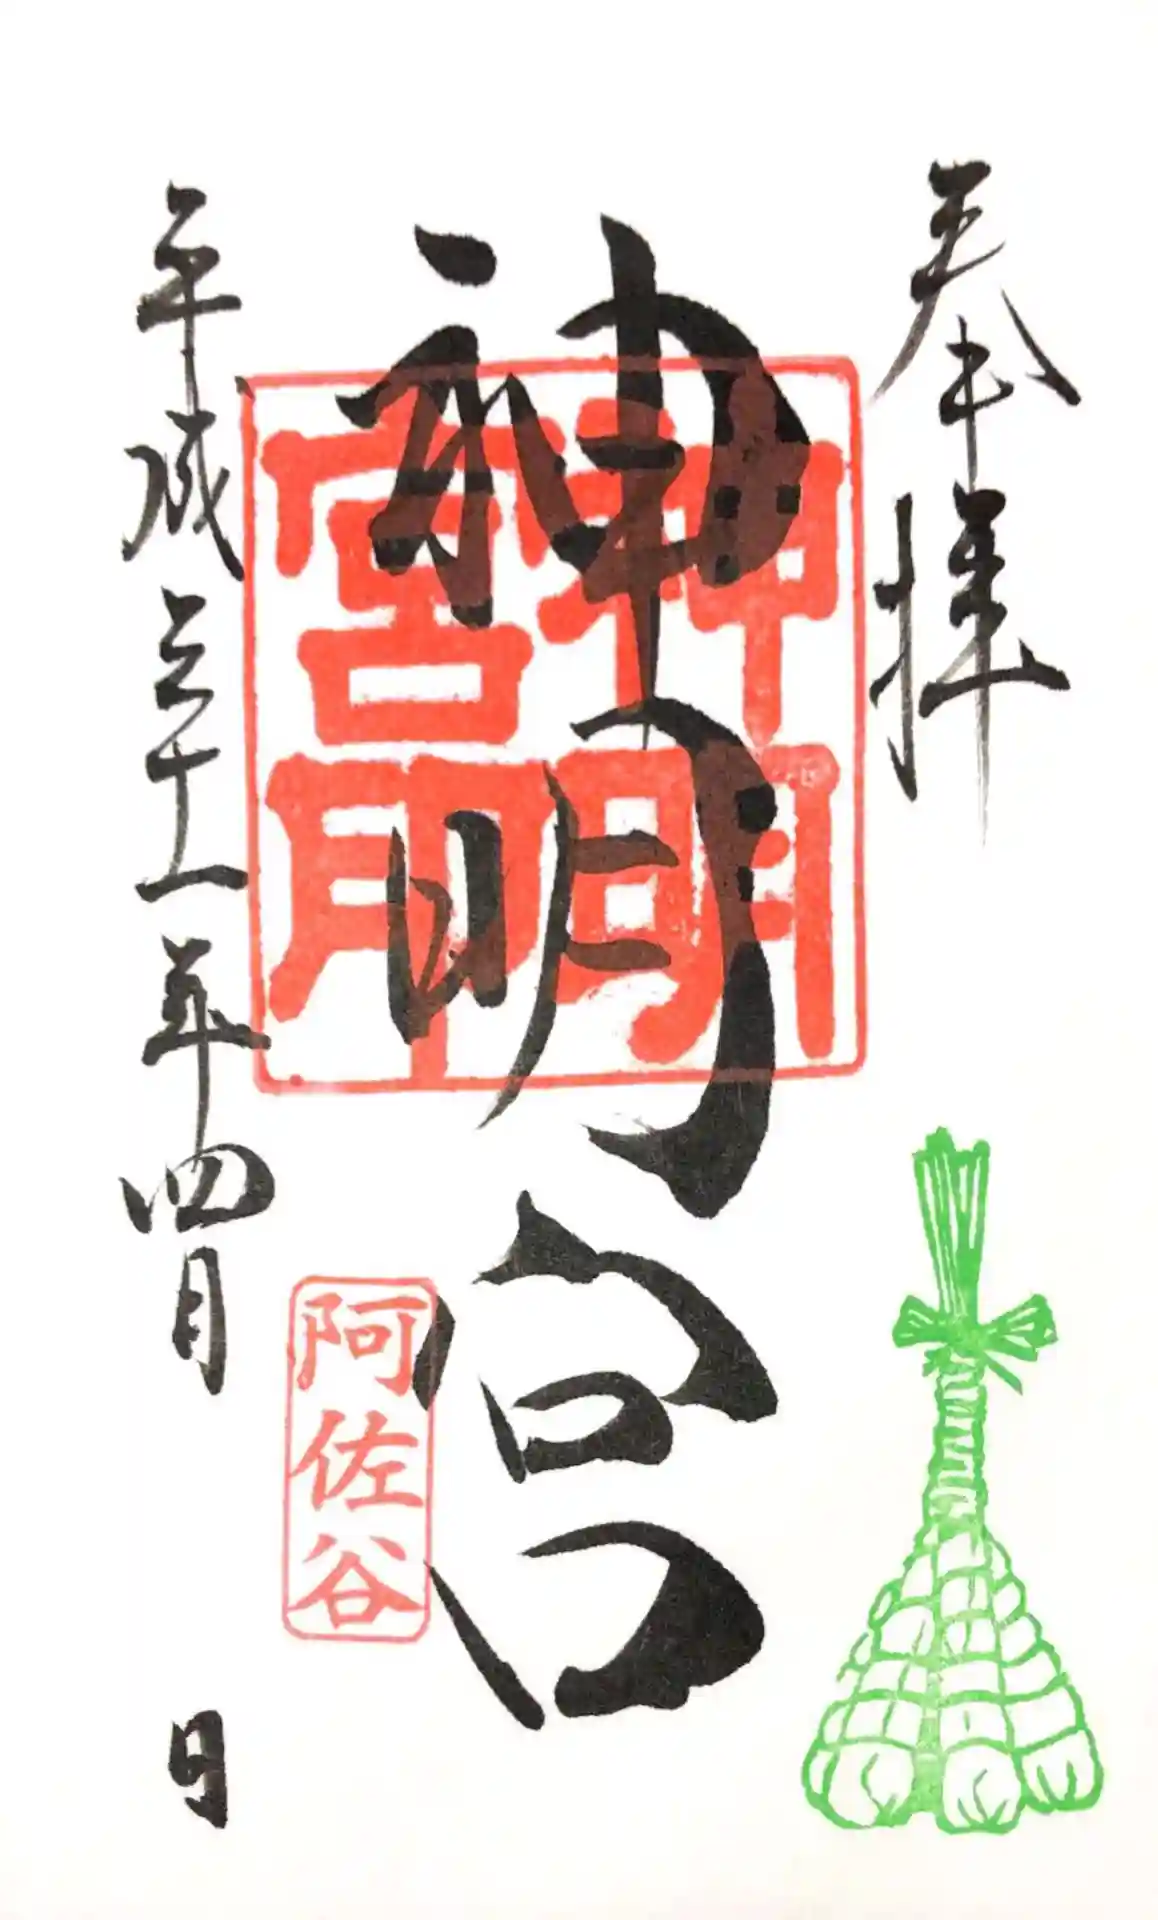 奉拝
神明宮
神明宮印
阿佐谷
平成三十一年四月 日